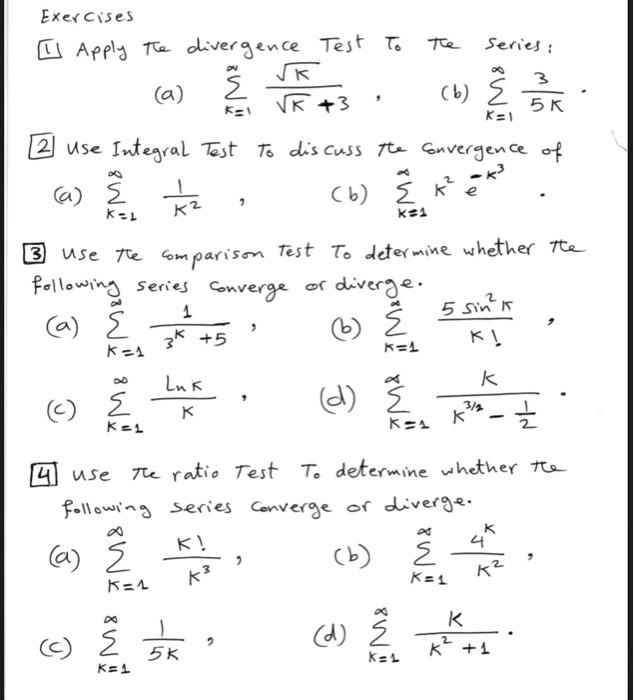 Exercises
[1] Apply the divergence Test To the Series:
(a) ∑_{k=1}^{∞} √k / (√k + 3) , (b) ∑_{k=1}^{∞} 3 / 5k .
[2] Use Integral Test To discuss the Convergence of
(a) ∑_{k=1}^{∞} 1 / k² , (b) ∑_{k=1}^{∞} k² e^{-k³} .
[3] Use the Comparison Test To determine whether the
following series Converge or diverge.
(a) ∑_{k=1}^{∞} 1 / (3^k + 5) , (b) ∑_{k=1}^{∞} 5 sin² k / k! ,
(c) ∑_{k=1}^{∞} Ln k / k , (d) ∑_{k=1}^{∞} k / (k^{3/2} - 1/2) .
[4] Use the ratio Test To determine whether the
following series Converge or diverge.
(a) ∑_{k=1}^{∞} k! / k³ , (b) ∑_{k=1}^{∞} 4^k / k² ,
(c) ∑_{k=1}^{∞} 1 / 5k , (d) ∑_{k=1}^{∞} k / (k² + 1) .